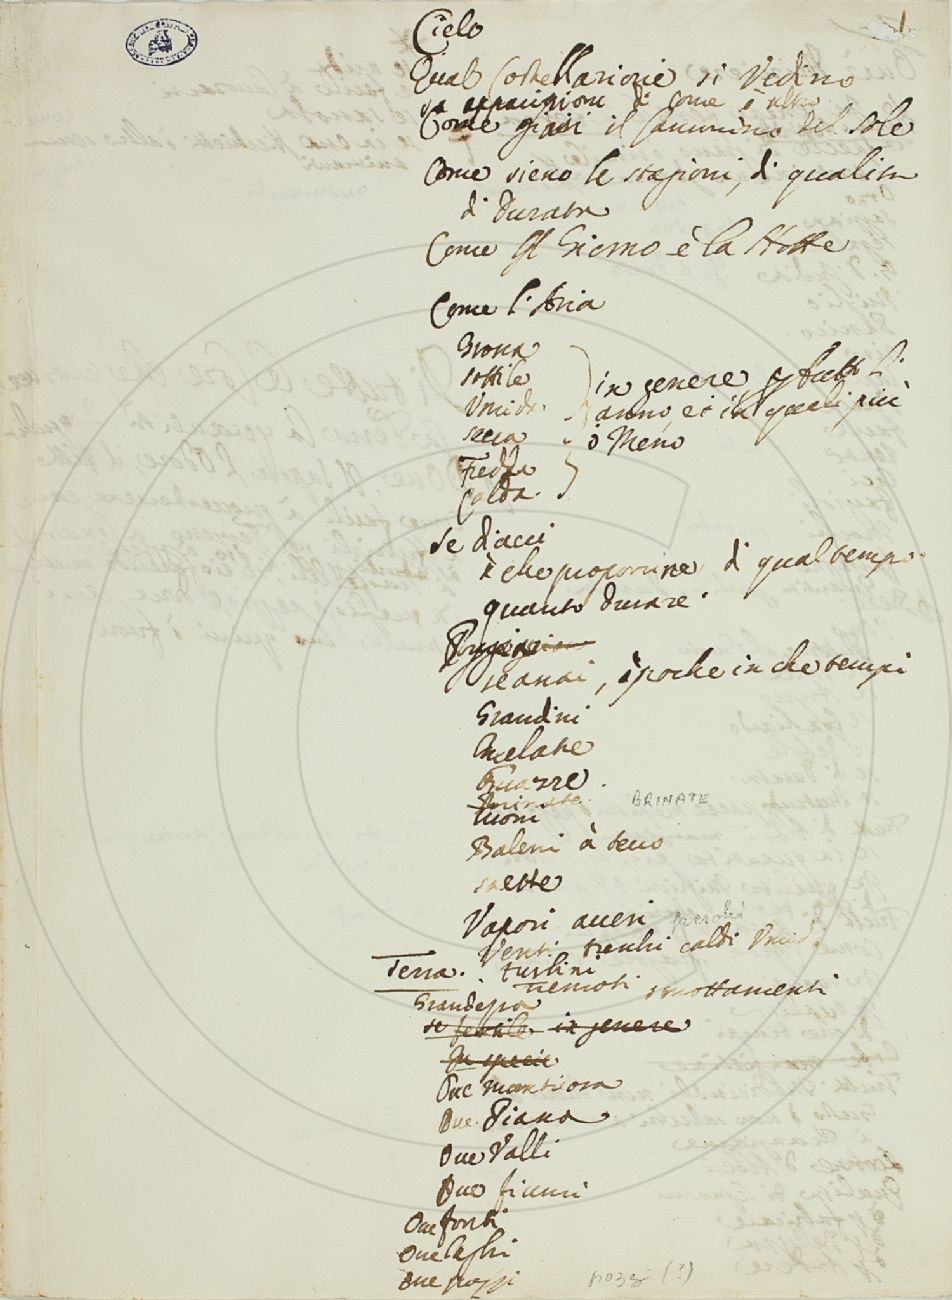 1
Cielo
Qual Costellazione si Vedino
et apparizioni di come è altro
Come giasi il Cammino del sole
Come sieno le stagioni, di qualità
di Durata
Come Il Giorno è la Notte
Come l'Aria
Grossa
sottile
Umida
secca
Fredda
Calda
in genere, e tutto l'
anno, et in quali più
ò Meno
se diacci
è che proporzione di qual tempo
quanto durare
Pioggie
se assai, ò poche in che tempi
Grandini
Melate
Guazze
Brinate BRINATE
tuoni
Baleni à secco
saette
Vapori accesi
Venti freschi caldi Umidi
turbini
Terra.
tremoti smottamenti
Grandezza
se fertile in genere
In specie
Due montuosa
Due Piana
Due Valli
Due fiumi
Due fonti
Due laghi
Due pozzi pozzi (?)